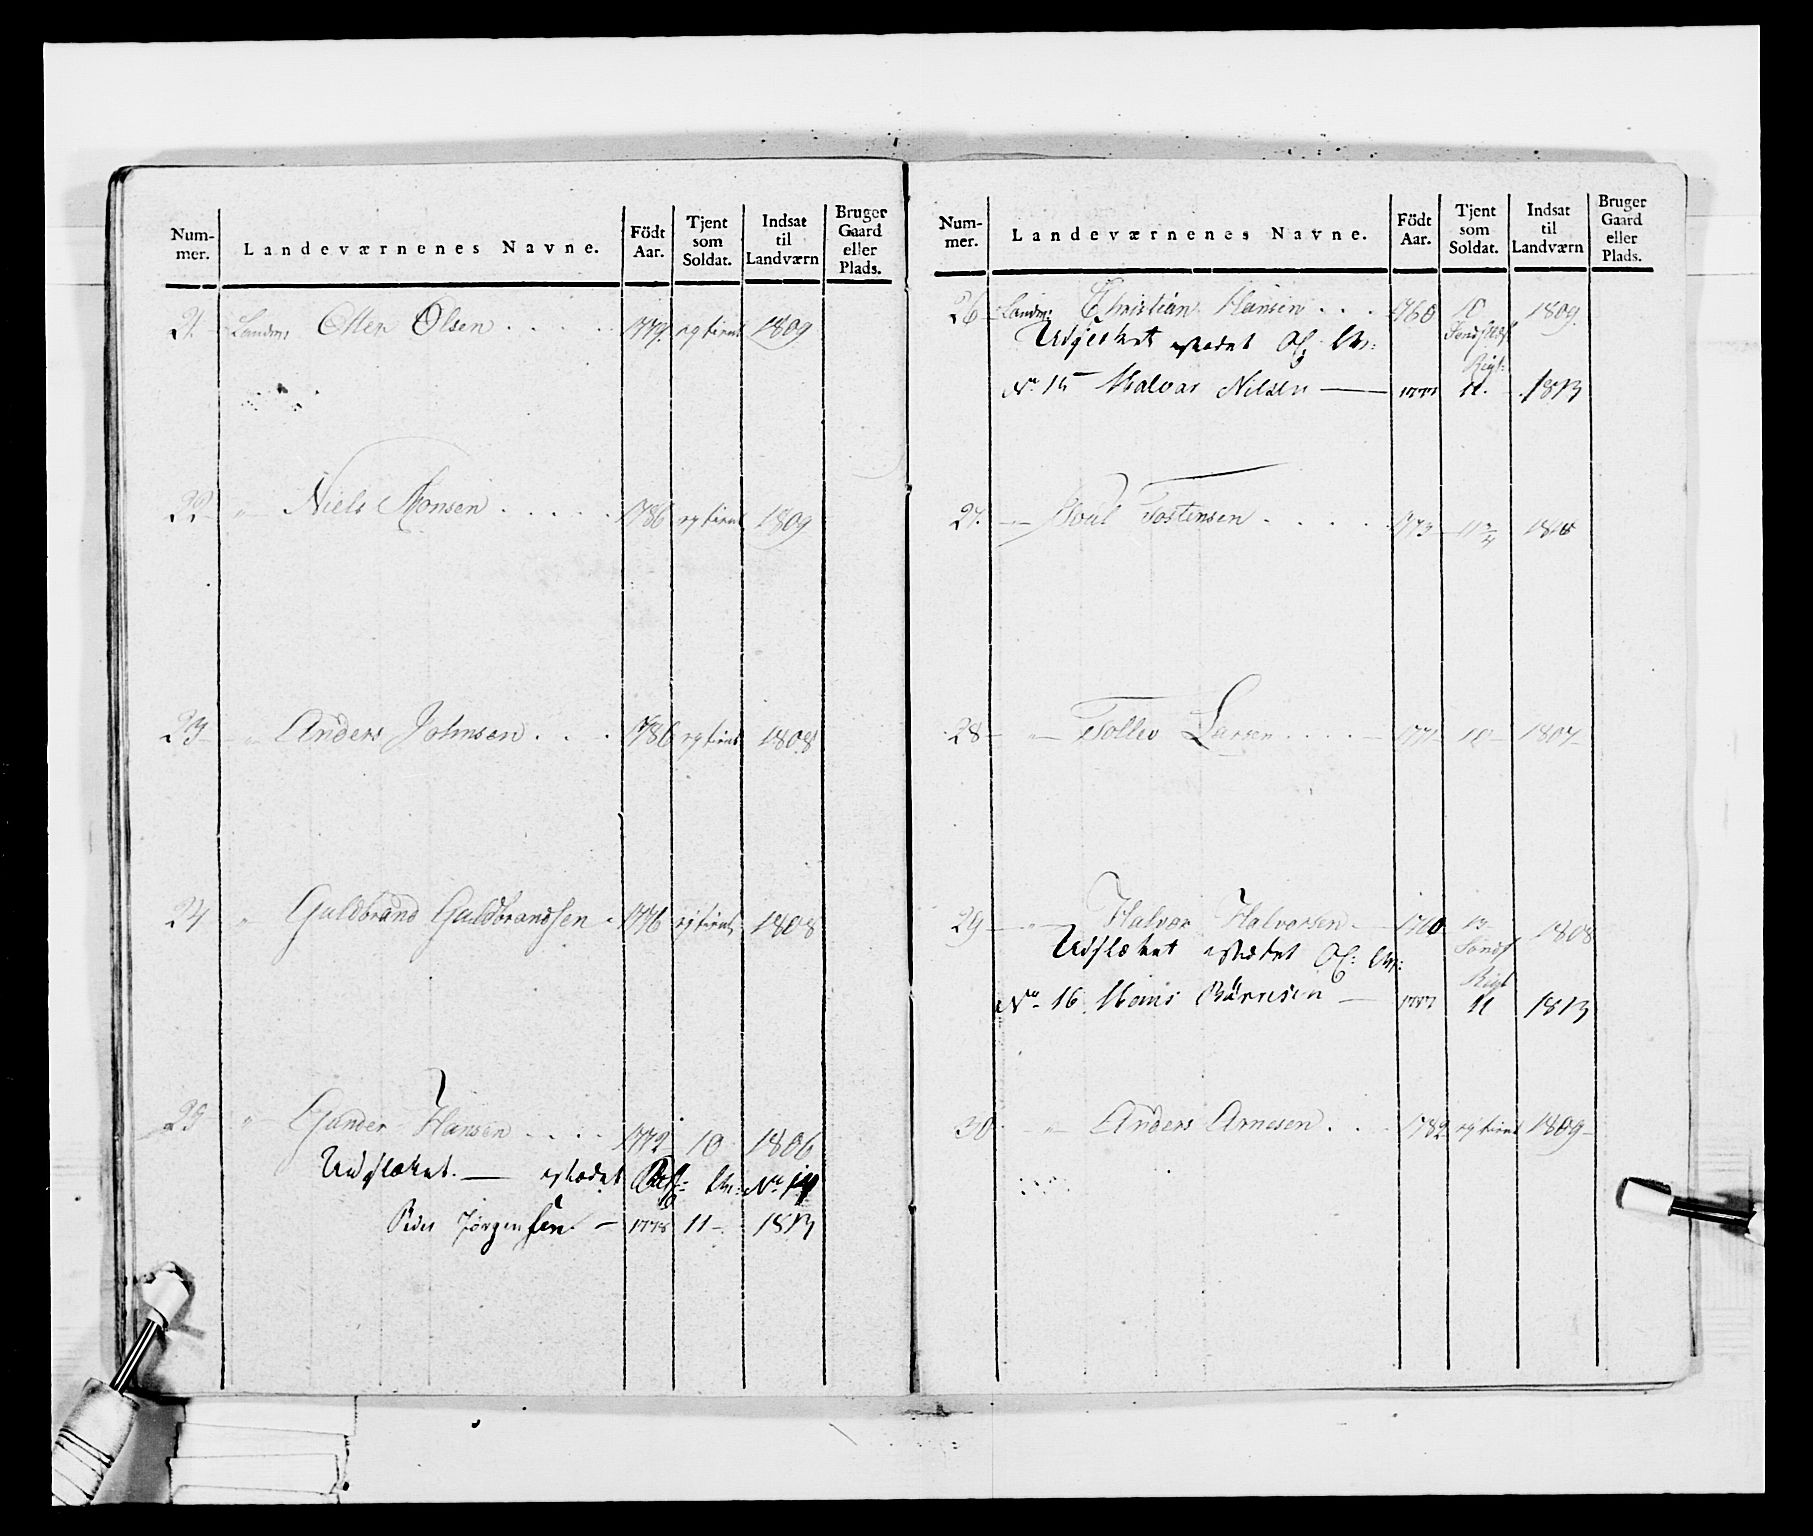 Num-
mer.
Landeværnenes Navne.
Födt
Aar.
Tjent
som
Soldat.
Indsat
til
Landværn
Bruger
Gaard
eller
Plads.
21. Landv: Olsen . . . . 1779. ey tient 1809
22 " Niels Monsen . . . . . 1786 ey tient 1809
23 " Anders Johnsen . . . 1786 ey tient 1808
24 " Guldbrand Guldbrandsen . 1776 ey tient 1808
25 " Gunder Hansen . . . . 1772 10 1806
Udslættet — istædet No 14
Peder Jørgensen — 1778 11 - 1813
Num-
mer.
Landeværnenes Navne.
Födt
Aar.
Tjent
som
Soldat.
Indsat
til
Landværn
Bruger
Gaard
eller
Plads.
26 Landv: Christian Hansen . . . 1760 10 1809.
istædet
Regt:
No 15 Halvor Nilsen — 1777 11. 1813
27. " Tostensen . . . . . 1773 11 3/4
28 " Tollev Larsen . . . . 1771 10 1807
29 " Halvor Halvorsen . 1760 13 1808
Udslættet istædet
Regt
No 16 Børresen — 1777 11 1813
30 " Anders Arnesen . . . 1782 ey tient 1809